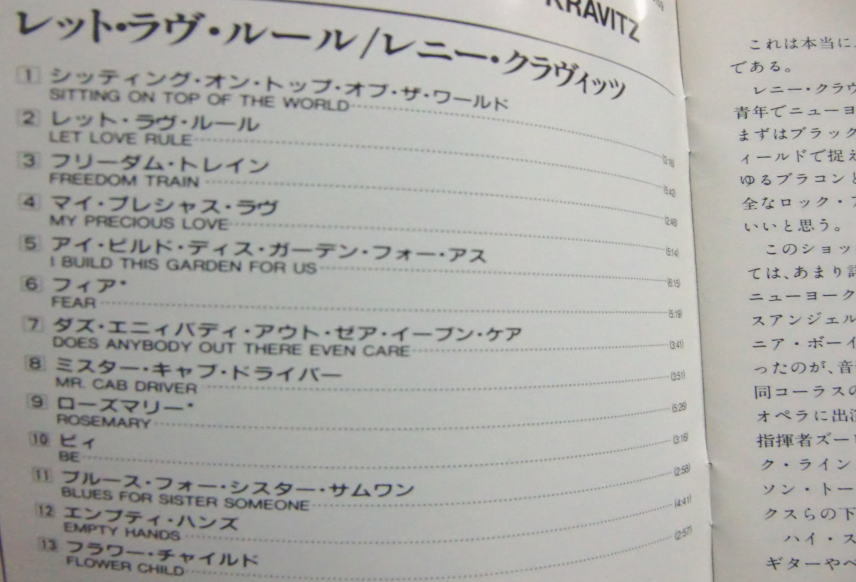 KRAVITZ
レット・ラヴ・ルール/レニー・クラヴィッツ
1 シッティング・オン・トップ・オブ・ザ・ワールド
SITTING ON TOP OF THE WORLD (3:16)
2 レット・ラヴ・ルール
LET LOVE RULE (5:42)
3 フリーダム・トレイン
FREEDOM TRAIN (2:48)
4 マイ・プレシャス・ラヴ
MY PRECIOUS LOVE (5:14)
5 アイ・ビルド・ディス・ガーデン・フォー・アス
I BUILD THIS GARDEN FOR US (6:15)
6 フィア*
FEAR (5:19)
7 ダズ・エニィバディ・アウト・ゼア・イーブン・ケア
DOES ANYBODY OUT THERE EVEN CARE (3:41)
8 ミスター・キャブ・ドライバー
MR. CAB DRIVER (3:51)
9 ローズマリー*
ROSEMARY (5:25)
10 ビィ
BE (3:16)
11 ブルース・フォー・シスター・サムワン
BLUES FOR SISTER SOMEONE (2:58)
12 エンプティ・ハンズ
EMPTY HANDS (4:41)
13 フラワー・チャイルド
FLOWER CHILD (2:57)
これは本当に
である。
レニー・クラヴ
青年でニューヨ
まずはブラック
ィールドで捉え
ゆるブラコンと
全なロック・ア
いいと思う。
このショッ
ては、あまり
ニューヨーク
スアンジェル
ニア・ボーイ
ったのが、音
同コーラスの
オペラに出演
指揮者ズー
ク・ライン
ソン・トー
クスらの下
ハイ・ス
ギターやベ